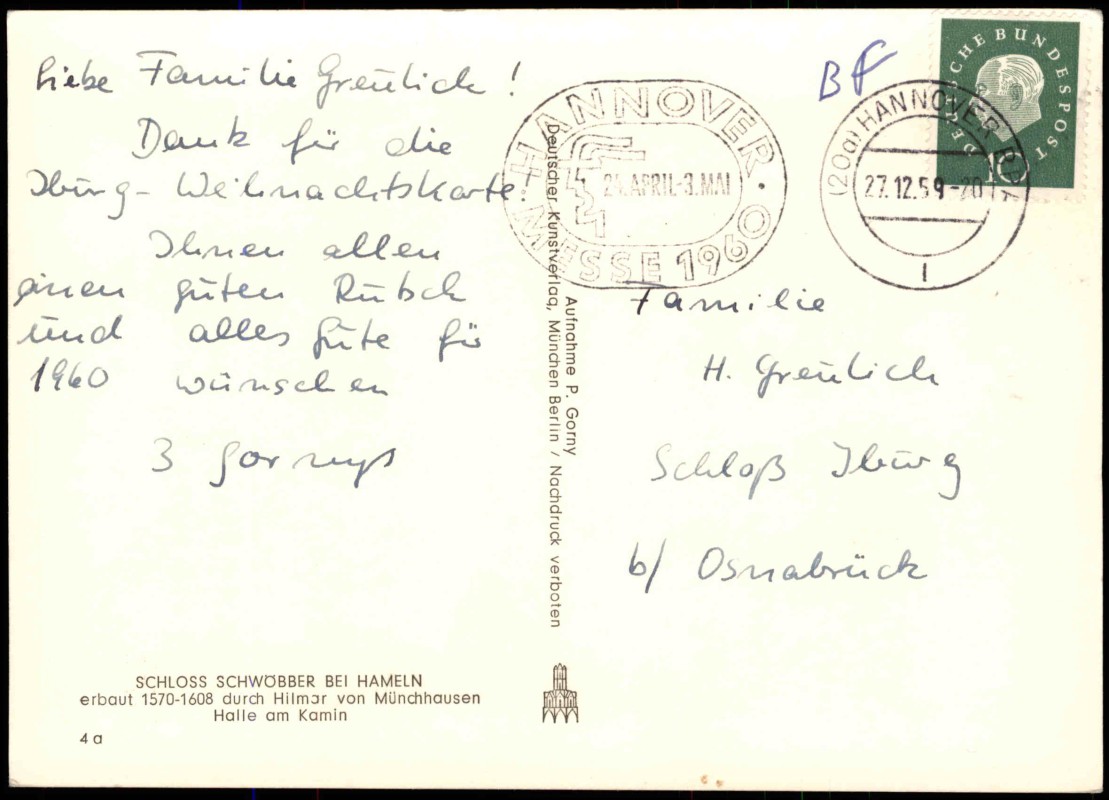 Liebe Familie Greulich!
Dank für die
Iburg-Weihnachtskarte!
Ihnen allen
einen guten Rutsch
und alles Gute für
1960 wünschen
3 Gornys
SCHLOSS SCHWÖBBER BEI HAMELN
erbaut 1570-1608 durch Hilmar von Münchhausen
Halle am Kamin
4a
Aufnahme P. Gorny
Deutscher Kunstverlag, München Berlin / Nachdruck verboten
HANNOVER
24. APRIL-3. MAI
MESSE 1960
BF
(20a) HANNOVER BPA
27.12.59-20
1
DEUTSCHE BUNDESPOST
10
Familie
H. Greulich
Schloß Iburg
b/ Osnabrück